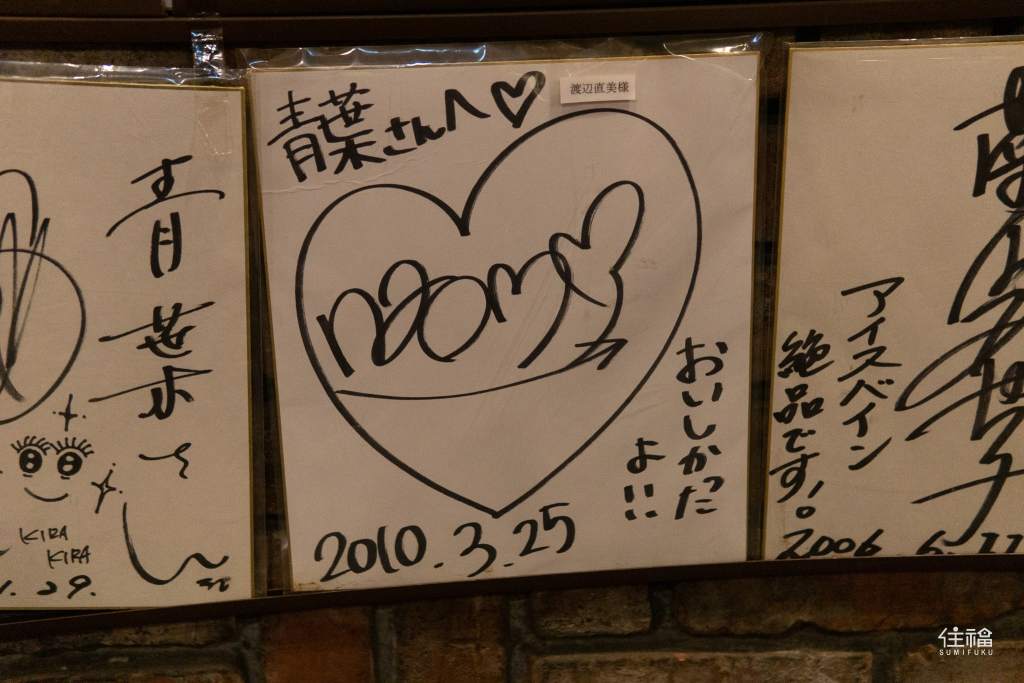 青葉さん
KIRA
KIRA
.29.
青葉さんへ♡
渡辺直美様
naomi
おいしかった
よ!!
2010.3.25
アイスベイン
絶品です!。
2006 6.
住福
SUMIFUKU